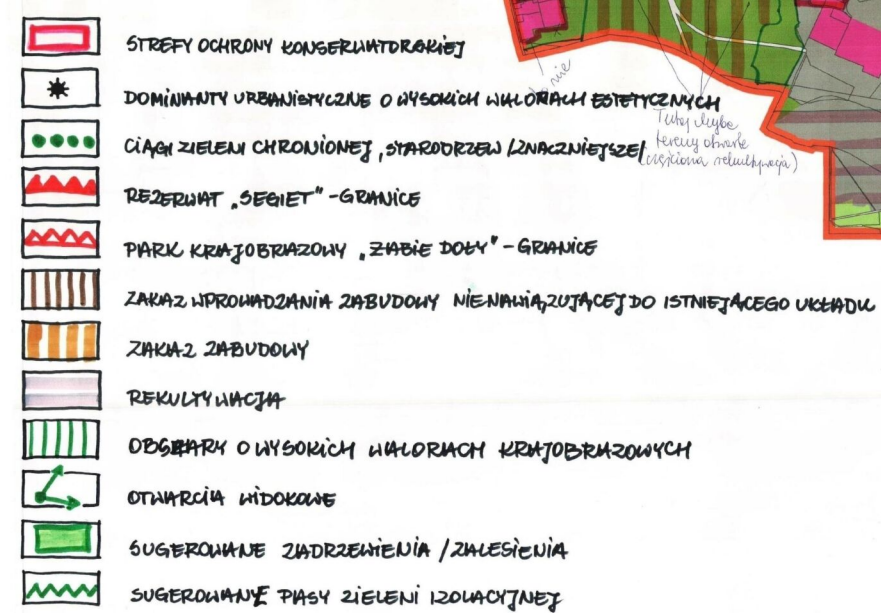 STREFY OCHRONY KONSERWATORSKIEJ
DOMINANTY URBANISTYCZNE O WYSOKICH WALORACH ESTETYCZNYCH
CIĄGI ZIELENI CHRONIONEJ, STARODRZEW /ZNACZNIEJSZE/
REZERWAT „SEGIET" - GRANICE
PARK KRAJOBRAZOWY „ŻABIE DOŁY" - GRANICE
ZAKAZ WPROWADZANIA ZABUDOWY NIENAWIĄZUJĄCEJ DO ISTNIEJĄCEGO UKŁADU
ZAKAZ ZABUDOWY
REKULTYWACJA
OBSZARY O WYSOKICH WALORACH KRAJOBRAZOWYCH
OTWARCIA WIDOKOWE
SUGEROWANE ZADRZEWIENIA / ZALESIENIA
SUGEROWANE PASY ZIELENI IZOLACYJNEJ
nie
Tutaj chyba
tereny otwarte
rekultywacja)